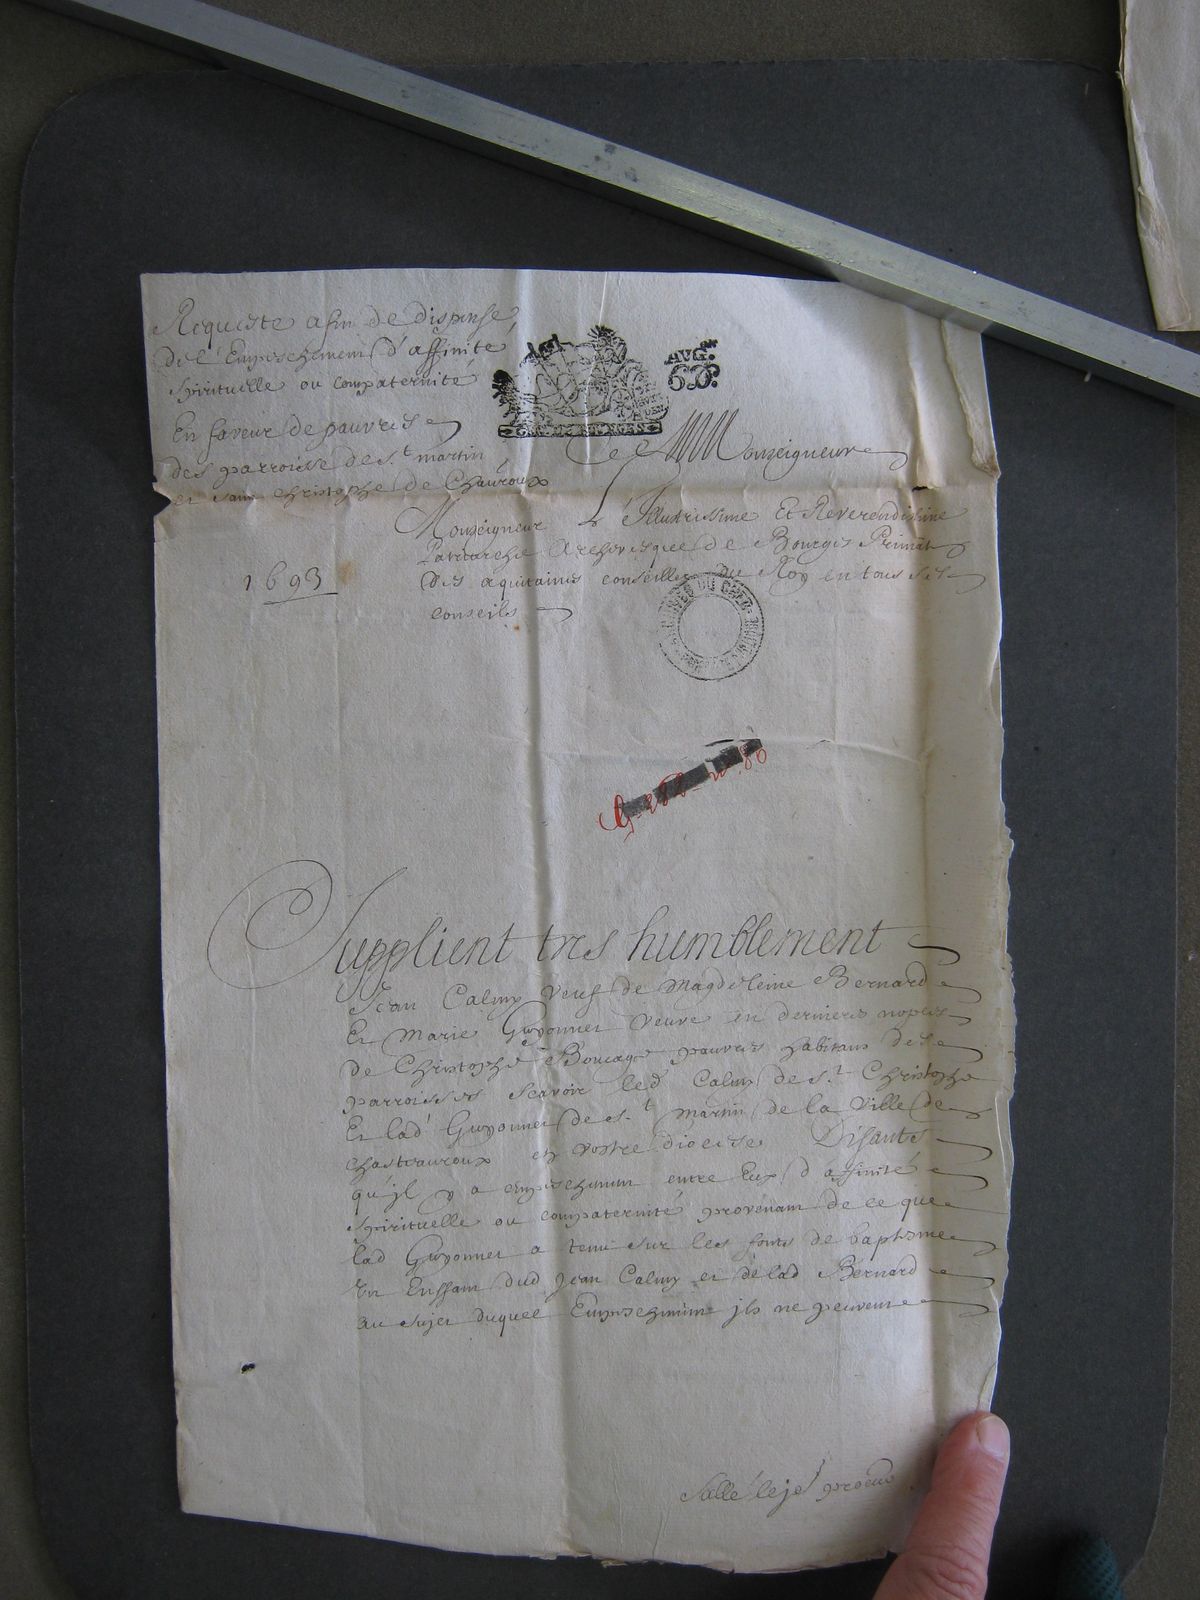 Requeste afin de dispense
de l'Empeschement d'affinité
spirituelle ou compaternité
En faveur de pauvres
des parroisse de St martin
et saint christophe de Chauroux
AVG.on
6 D.
A Monseigneur
Monseigneur L'Illustrissime Et Reverendissime
Patriarche Archevesque de Bourges Primat
des aquitaines conseiller du Roy en tous ses
conseils
1693
ARCHIVES DU CHER
Supplient tres humblement
Jean Caluy Veuf de Magdeleine Bernard
Et Marie Guyonnet Veuve en dernieres nopces
de Christophe Boucage pauvres habitans des
parroisses scavoir led Caluy de St Christophe
Et lad Guyonnet de St Martin de la Ville de
chasteauroux en vostre diocese Disants
qu'jl y a empeschement entre Eux d'affinité
spirituelle ou compaternité provenant de ce que
lad Guyonnet a tenu sur les fonts de baptesme
Un Enffant dud Jean Caluy et de lad Bernard
au sujet duquel Empeschement jls ne peuvent
Sallé lejeᵉ